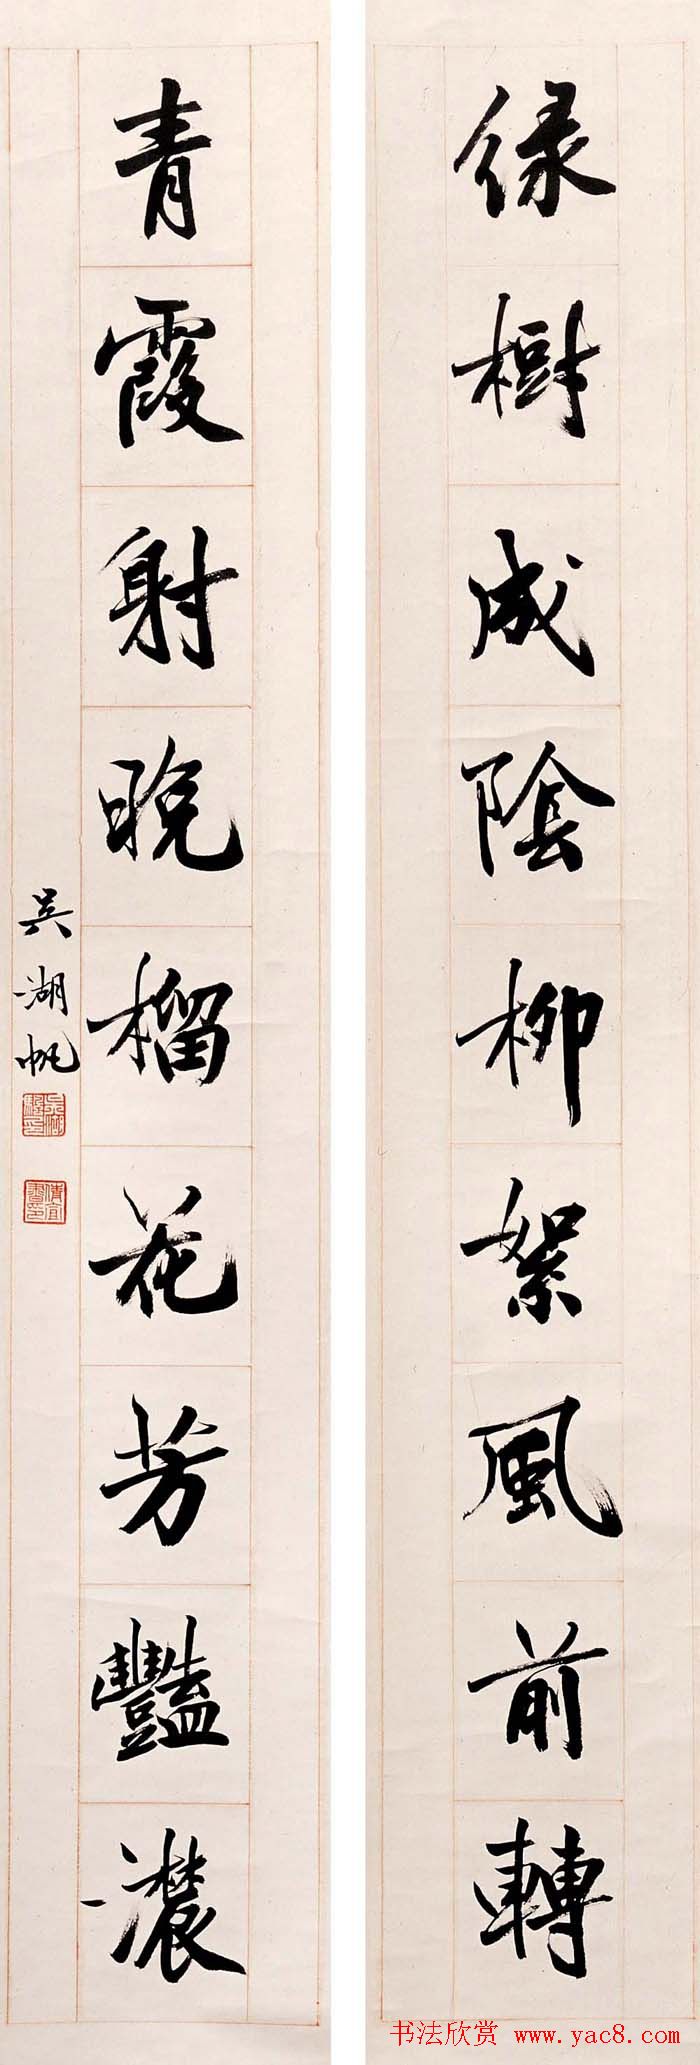 绿樹成陰柳絮風前轉
青霞射晚榴花芳豔濃
吴湖帆
书法欣赏 www.yac8.com